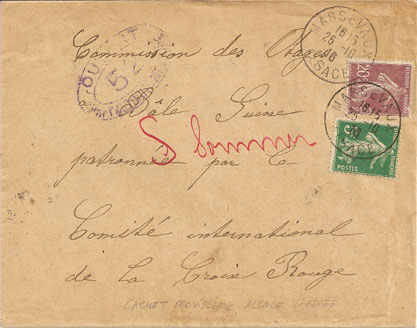 MASSEVAUX
16-15
25-10
ALSACE
OUVERT
52
20c
MASSEVAUX
16-15
ALSACE
5
POSTES
Commission des Otages
Bâle Suisse
S hommes
patronnée par le
Comité international
de la Croix Rouge
CACHET PROVISOIRE ALSACE LIBÉRÉE